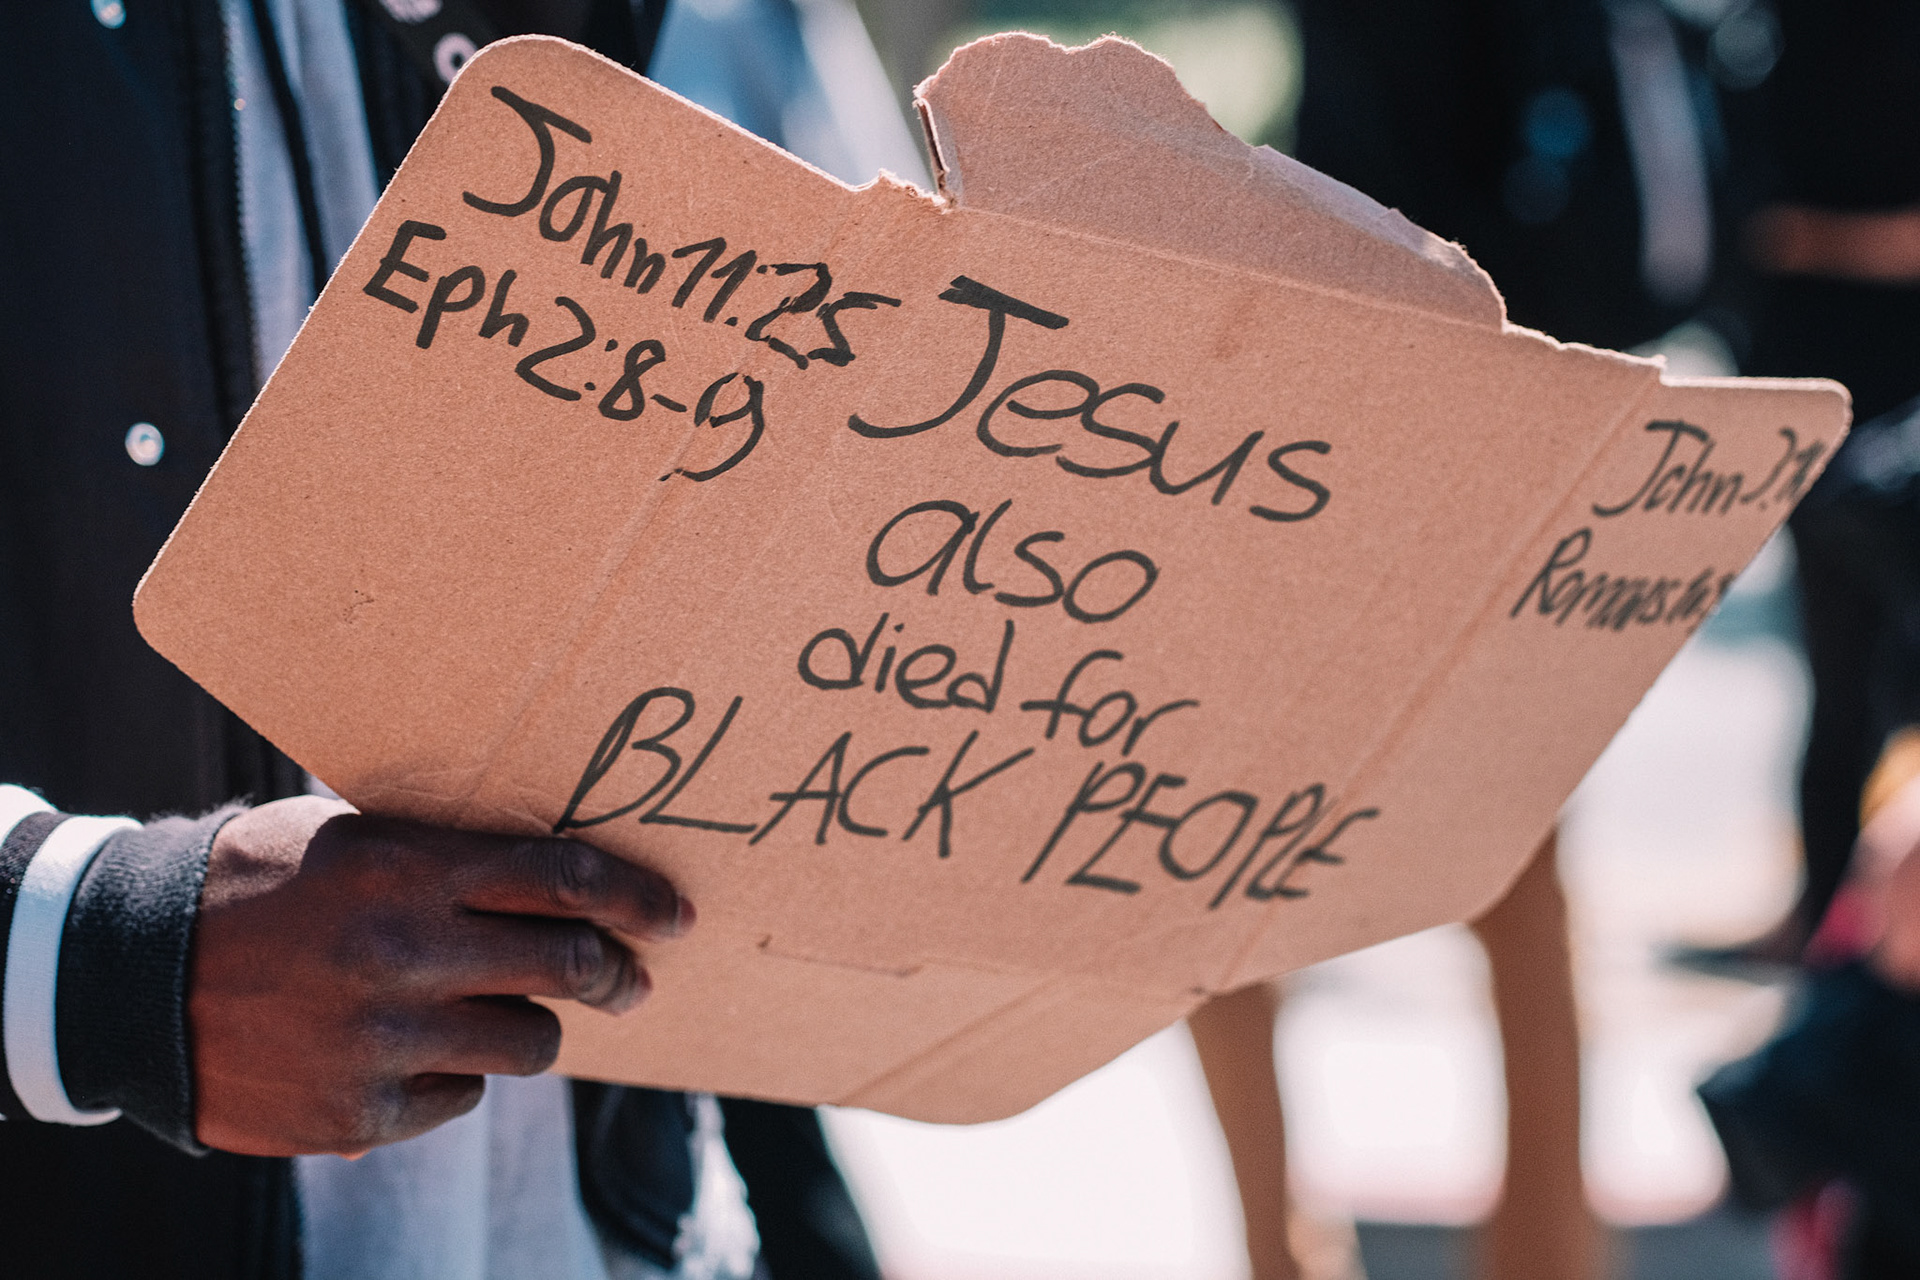 John 11:25
Eph 2:8-9
Jesus
also
died for
BLACK PEOPLE
John
Romans